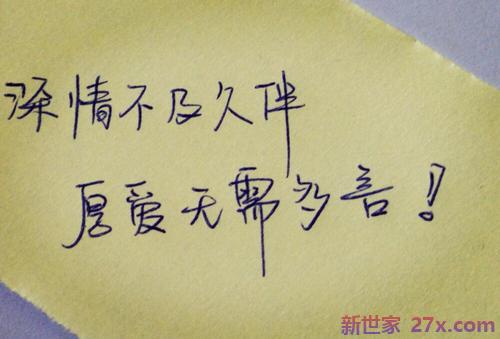 深情不及久伴
厚爱无需多言!
新世家 27x.com